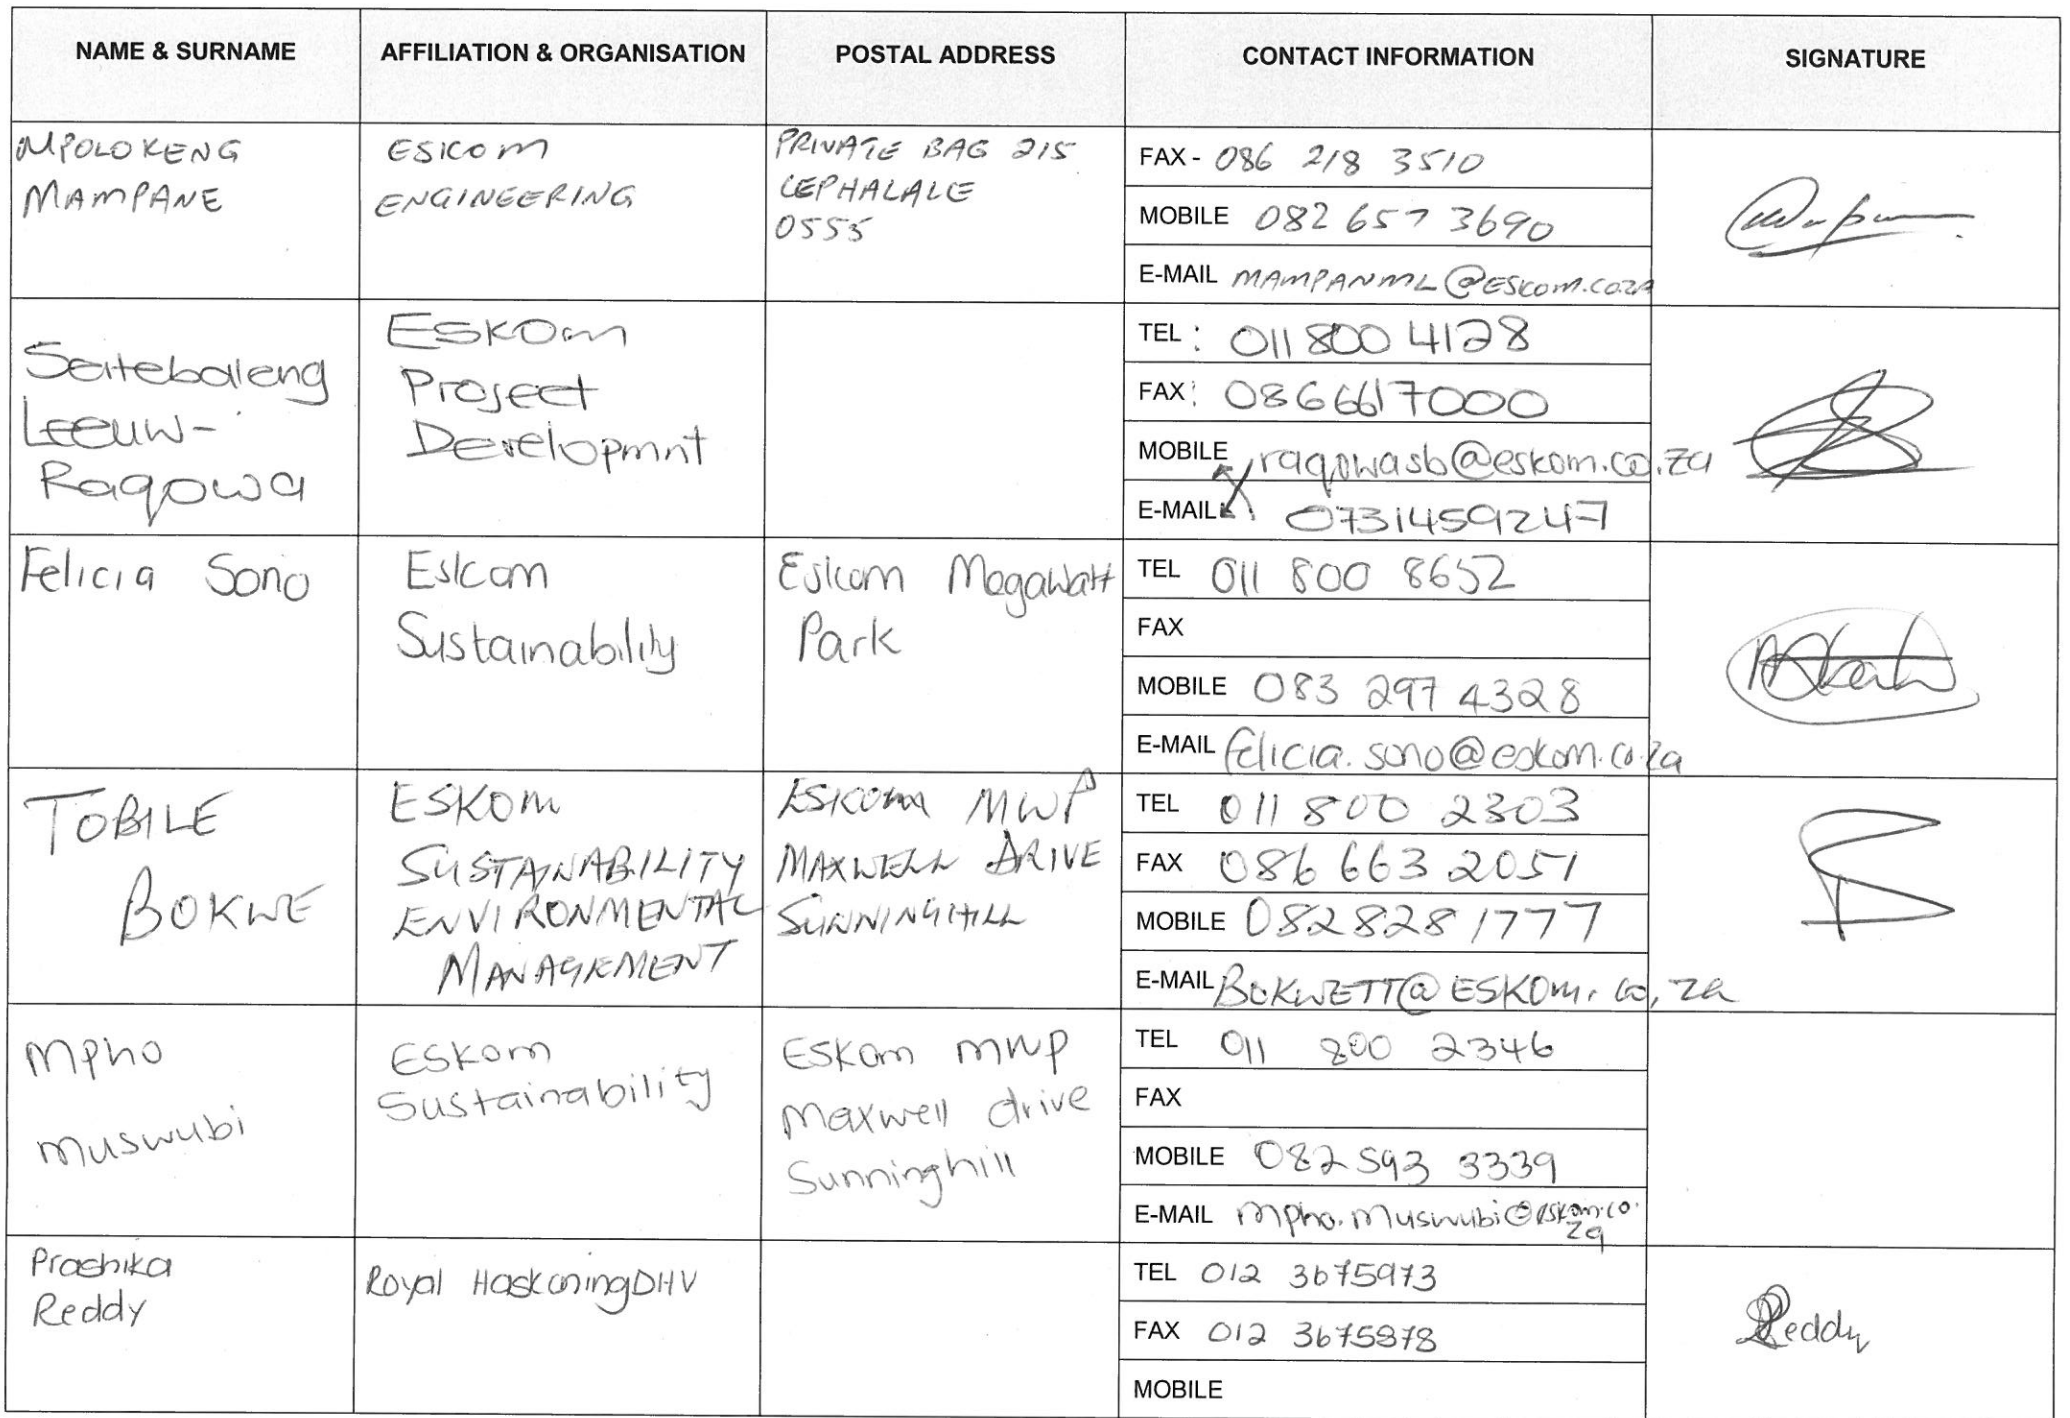 NAME & SURNAME AFFILIATION & ORGANISATION POSTAL ADDRESS CONTACT INFORMATION SIGNATURE
MPOLOKENG
MAMPANE
ESKOM
ENGINEERING
PRIVATE BAG 215
LEPHALALE
0555
FAX - 086 218 3510
MOBILE 082 657 3690
E-MAIL MAMPANML@ESKOM.CO.ZA
Seitebaleng
Leeuw-
Raqowa
Eskom
Project
Developmnt
TEL : 011 800 4128
FAX: 0866617000
MOBILE raqowasb@eskom.co.za
E-MAIL 0731459247
Felicia Sono
Eskom
Sustainability
Eskom Megawatt
Park
TEL 011 800 8652
FAX
MOBILE 083 297 4328
E-MAIL felicia.sono@eskom.co.za
TOBILE
BOKWE
ESKOM
SUSTAINABILITY
ENVIRONMENTAL
MANAGEMENT
ESKOM MWP
MAXWELL DRIVE
SUNNINGHILL
TEL 011 800 2303
FAX 086 663 2051
MOBILE 082 828 1777
E-MAIL BOKWETT@ESKOM.co.za
Mpho
Muswubi
Eskom
Sustainability
Eskom MWP
Maxwell drive
Sunninghill
TEL 011 800 2346
FAX
MOBILE 082 593 3339
E-MAIL Mpho.Muswubi@eskom.co.
za
Prashika
Reddy
Royal HaskoningDHV
TEL 012 3675973
FAX 012 3675878
MOBILE
PReddy